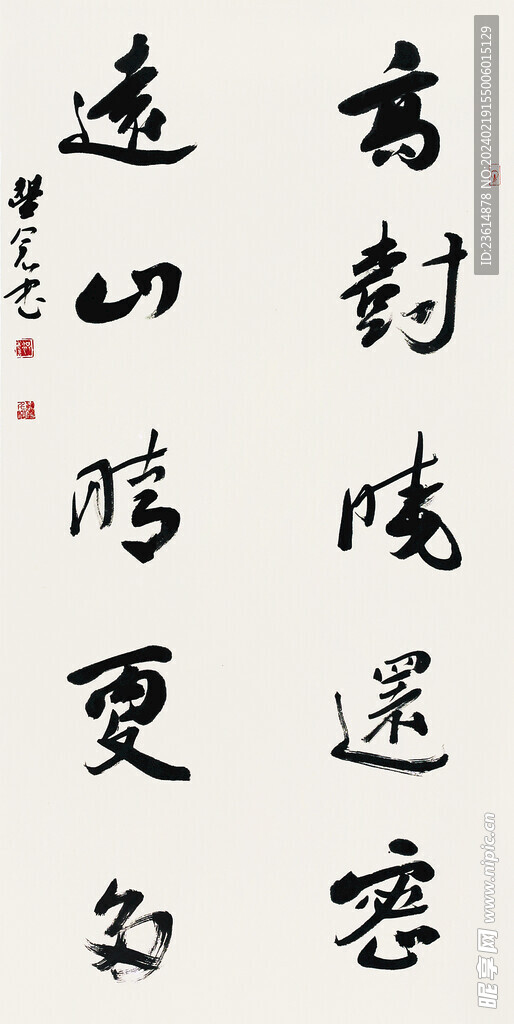 高樹曉還密
遠山晴更多
書
ID:23614878 NO:20240219155006015129
昵享网 www.nipic.cn